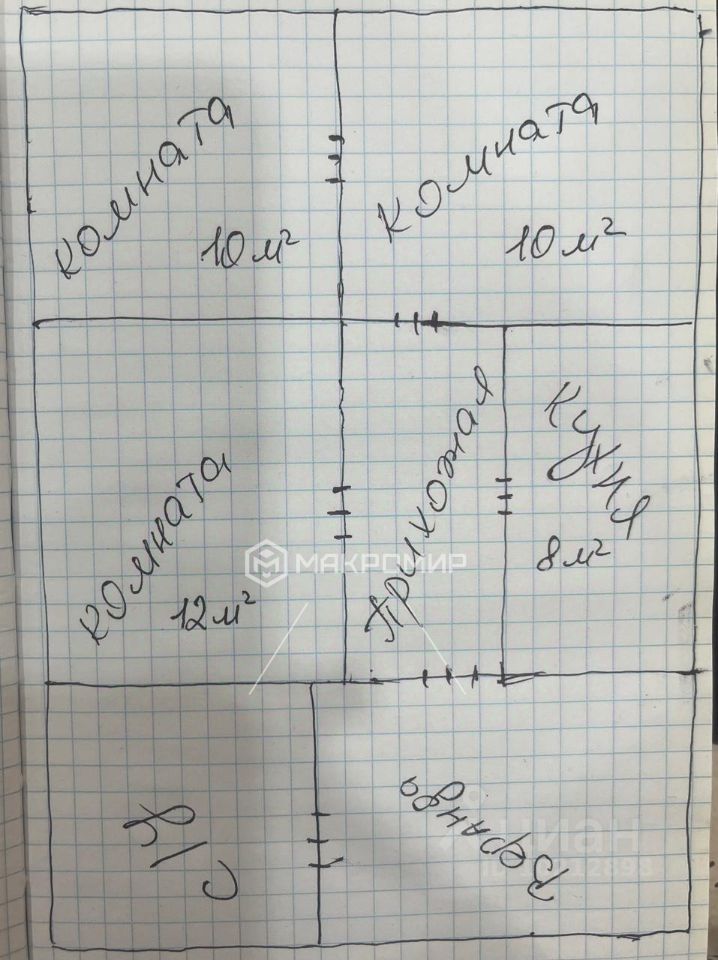 комната
10 м²
комната
10 м²
комната
12 м²
Прихожая
Кухня
8 м²
МАКРОМИР
С/У
Веранда
циан